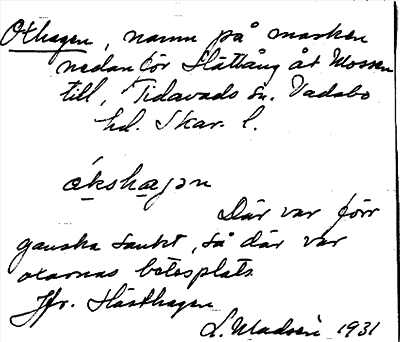 Oxhagen, namn på marken
nedanför Slättäng åt Mossen
till, Tidavads sn. Vadsbo
hd. Skar. l.
ókshaɡən
Där var förr
ganska sankt, så där var
oxarnas betesplats
Jfr. Hästhagen
L. 1931